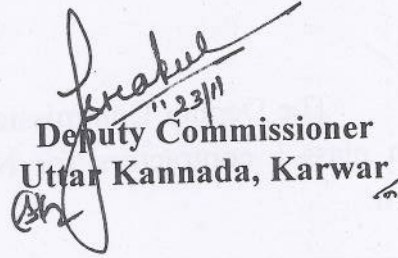 23/11
Deputy Commissioner
Uttar Kannada, Karwar